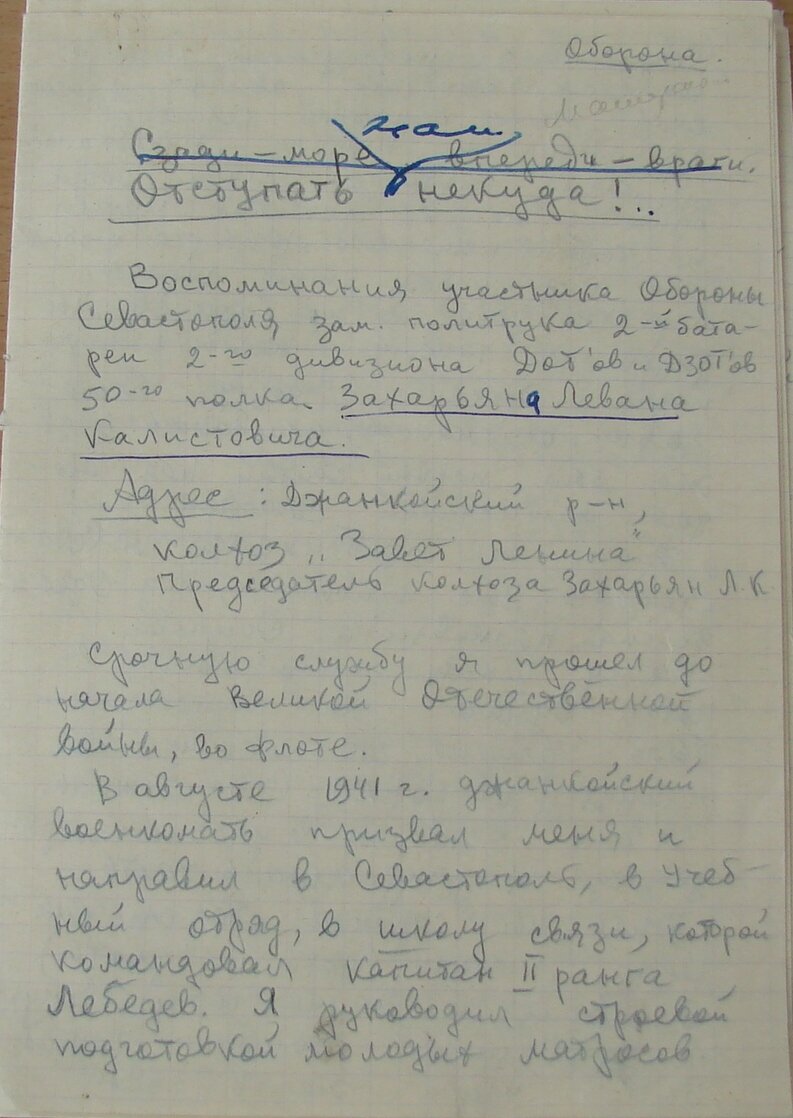 Оборона.
нам
Сзади – море впереди – враги.
Отступать некуда!..
Воспоминания участника Обороны
Севастополя зам. политрука 2-й бата-
реи 2-го дивизиона ДОТ'ов и ДЗОТ'ов
50-го полка. Захарьяна Левана
Калистовича.
Адрес : Джанкойский р-н,
колхоз „Завет Ленина"
Председатель колхоза Захарьян Л.К
Срочную службу я прошел до
начала Великой Отечественной
войны, во флоте.
В августе 1941 г. джанкойский
военкомать призвал меня и
направил в Севастополь, в Учеб-
ный отряд, в школу связи, которой
командовал капитан II ранга
Лебедев. Я руководил строевой
подготовкой молодых матросов